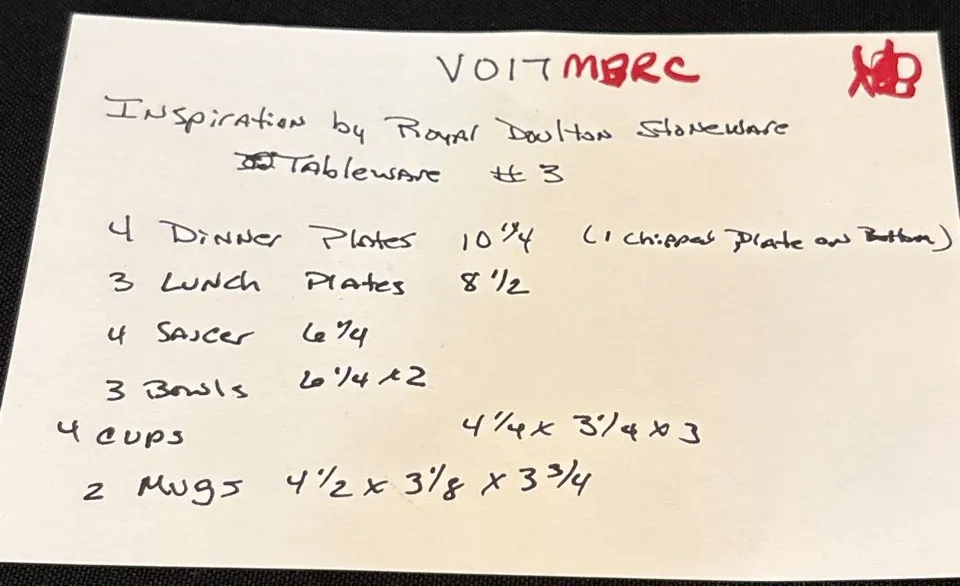 VO17 MBRC
Inspiration by Royal Doulton Stoneware
Tableware # 3
4 Dinner Plates 10 1/4 (1 chipped Plate on Bottom)
3 Lunch Plates 8 1/2
4 Saucer 6 1/4
3 Bowls 6 1/4 x 2
4 Cups 4 1/4 x 3 1/4 x 3
2 Mugs 4 1/2 x 3 1/8 x 3 3/4